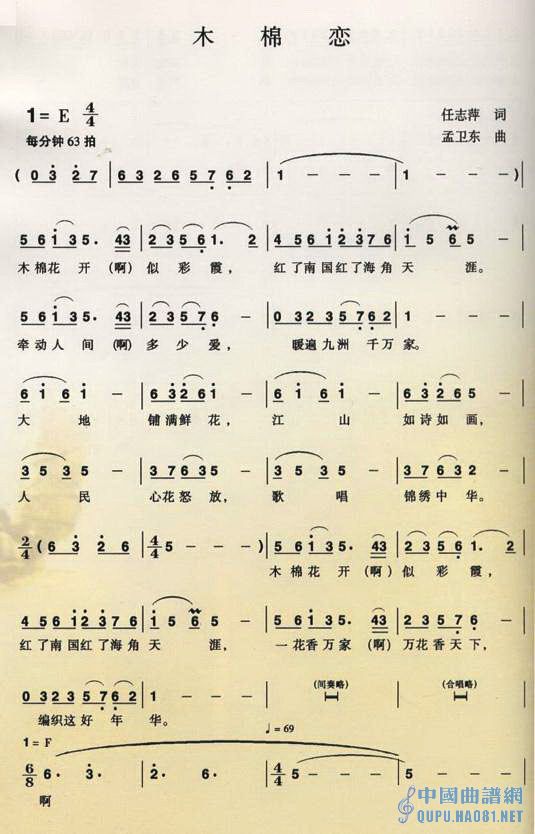 木 棉 恋
1= E 4/4
任志萍 词
每分钟 63 拍
孟卫东 曲
( 0 3 2 7 | 6 3 2 6 5 7 6 2 | 1 - - - | 1 - - - )
5 6 1 3 5. 43 | 2 3 5 6 1. 2 | 4 5 6 1 2 3 7 6 | 1 5 6 5 - |
木 棉 花 开 (啊) 似 彩 霞, 红 了 南 国 红 了 海 角 天 涯。
5 6 1 3 5. 43 | 2 3 5 7 6 - | 0 3 2 2 3 5 7 6 | 1 - - - |
牵 动 人 间 (啊) 多 少 爱, 暖 遍 九 洲 千 万 家。
6 1 6 1 - | 6 1 6 3 2 - | 6 1 6 1 - | 6 1 6 3 2 - |
大 地 铺 满 鲜 花, 江 山 如 诗 如 画,
3 5 3 5 - | 3 5 7 7 6 - | 3 5 3 5 - | 3 7 6 3 2 - |
人 民 心 花 怒 放, 歌 唱 锦 绣 中 华。
2/4 ( 6 3 2 6 | 4/4 5 - - - ) | 5 6 1 3 5. 43 | 2 3 5 6 1. 2 |
木 棉 花 开 (啊) 似 彩 霞,
4 5 6 1 2 3 7 6 | 1 5 6 5 - | 5 6 1 3 5. 43 | 2 3 5 7 6 - |
红 了 南 国 红 了 海 角 天 涯, 一 花 香 万 家 (啊) 万 花 香 天 下,
0 3 2 3 5 7 6 2 | 1 - - - | (间奏略) | (合唱略) |
编 织 这 好 年 华。
♩=69
1 = F
6/8 6. 3. | 2. 6. | 4/4 5 - - - | 5 - - -
啊
中國曲譜網
QUPU.HAO81.NET